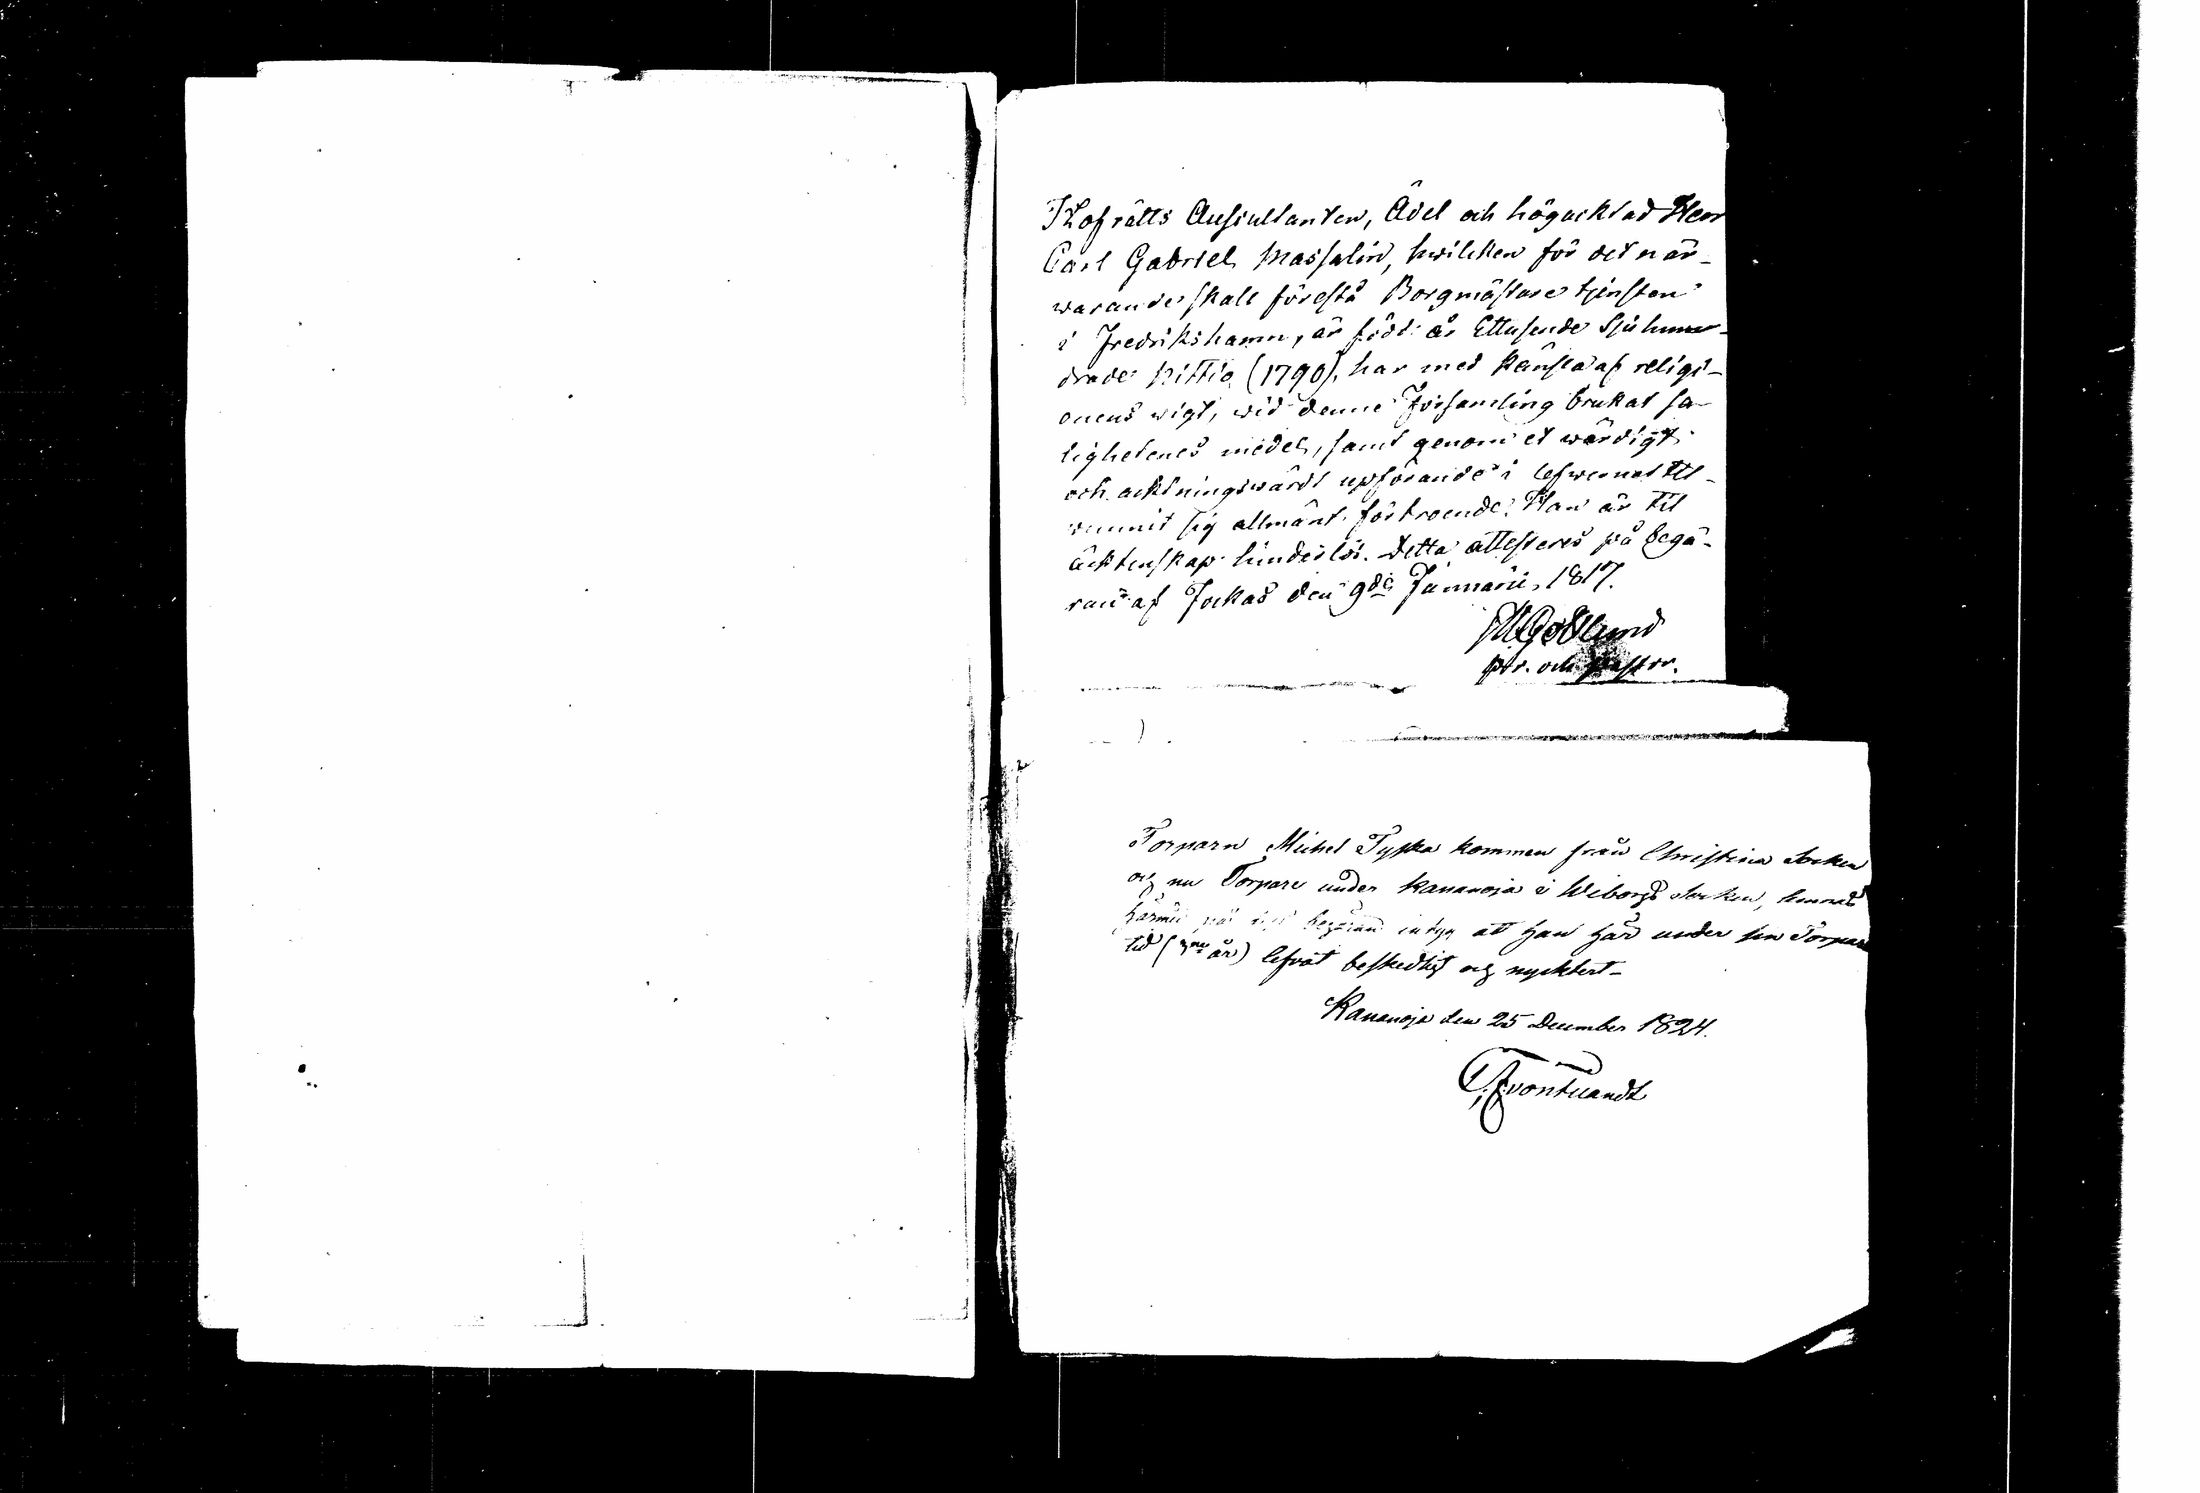 Hofrätts Auscultanten, Ädel och högacktad Herr
Carl Gabriel Massalin, hwilcken för det när-
warande skall förestå Borgmästare tjensten
i Fredrikshamn, är född år Ettusende Sjuhun-
drade Nittio (1790), har med känsla af religi-
onens wigt, wid denne Församling brukat sa-
lighetenes medel, samt genom et wärdigt
och acktningswärdt upförande i lefwernet til-
wunnit sig allmänt förtroende. Han är til
äcktenskap hinderlös. Detta attesteres på begä-
ran af Jockas den 9de Januarii 1817.
M Gottlund
pr. och Pastor.
Torparn Michel Tyska kommen från Christina Socken
och nu Torpare under Kananoja i Wiborgs Socken,
härmed på begäran intyg att han här under sin Torpare
tid (3ne år) lefvat beskedligt och nycktert-
Kananoja den 25 December 1824.